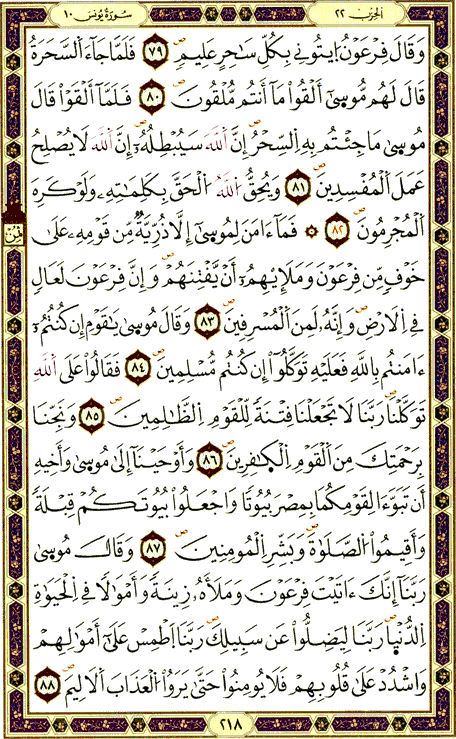 الحزب ٢٢
سُورَةُ يُونُسَ ١٠
وَقَالَ فِرْعَوْنُ اِيتُونِے بِكُلِّ سَٰحِرٍ عَلِيمٍ ٧٩ فَلَمَّا جَآءَ اَلسَّحَرَةُ
قَالَ لَهُم مُّوسَىٰٓ أَلْقُواْ مَآ أَنتُم مُّلْقُونَ ٨٠ فَلَمَّآ أَلْقَوْاْ قَالَ
مُوسَىٰ مَا جِئْتُم بِهِ اِلسِّحْرُ إِنَّ اَللَّهَ سَيُبْطِلُهُۥٓ إِنَّ اَللَّهَ لَا يُصْلِحُ
عَمَلَ اَلْمُفْسِدِينَ ٨١ وَيُحِقُّ اُللَّهُ اُلْحَقَّ بِكَلِمَٰتِهِۦ وَلَوْ كَرِهَ
اَلْمُجْرِمُونَ ٨٢ ۞ فَمَآ ءَامَنَ لِمُوسَىٰٓ إِلَّا ذُرِّيَّةٌ مِّن قَوْمِهِۦ عَلَىٰ
خَوْفٍ مِّن فِرْعَوْنَ وَمَلَإِيْهِمُۥٓ أَنْ يَّفْتِنَهُمْ وَإِنَّ فِرْعَوْنَ لَعَالٍ
فِے اِلَارْضِ وَإِنَّهُۥ لَمِنَ اَلْمُسْرِفِينَ ٨٣ وَقَالَ مُوسَىٰ يَٰقَوْمِ إِن كُنتُمُۥٓ
ءَامَنتُم بِاللَّهِ فَعَلَيْهِ تَوَكَّلُوٓاْ إِن كُنتُم مُّسْلِمِينَ ٨٤ فَقَالُواْ عَلَى اَللَّهِ
تَوَكَّلْنَا رَبَّنَا لَا تَجْعَلْنَا فِتْنَةً لِّلْقَوْمِ اِلظَّٰلِمِينَ ٨٥ وَنَجِّنَا
بِرَحْمَتِكَ مِنَ اَلْقَوْمِ اِلْكٰ۪فِرِينَ ٨٦ وَأَوْحَيْنَآ إِلَىٰ مُوسَىٰ وَأَخِيهِ
أَن تَبَوَّءَا لِقَوْمِكُمَا بِمِصْرَ بُيُوتًا وَاجْعَلُواْ بُيُوتَكُمْ قِبْلَةً
وَأَقِيمُواْ اُلصَّلَوٰةَ وَبَشِّرِ اِلْمُومِنِينَ ٨٧ وَقَالَ مُوسَىٰ
رَبَّنَآ إِنَّكَ ءَاتَيْتَ فِرْعَوْنَ وَمَلَأَهُۥ زِينَةً وَأَمْوَٰلًا فِے اِلْحَيَوٰةِ
اِلدُّنْيَا رَبَّنَا لِيَضِلُّواْ عَن سَبِيلِكَ رَبَّنَا اَطْمِسْ عَلَىٰٓ أَمْوَٰلِهِمْ
وَاشْدُدْ عَلَىٰ قُلُوبِهِمْ فَلَا يُومِنُواْ حَتَّىٰ يَرَوُاْ اُلْعَذَابَ اَلَالِيمَ ٨٨
ثمن
٢١٨